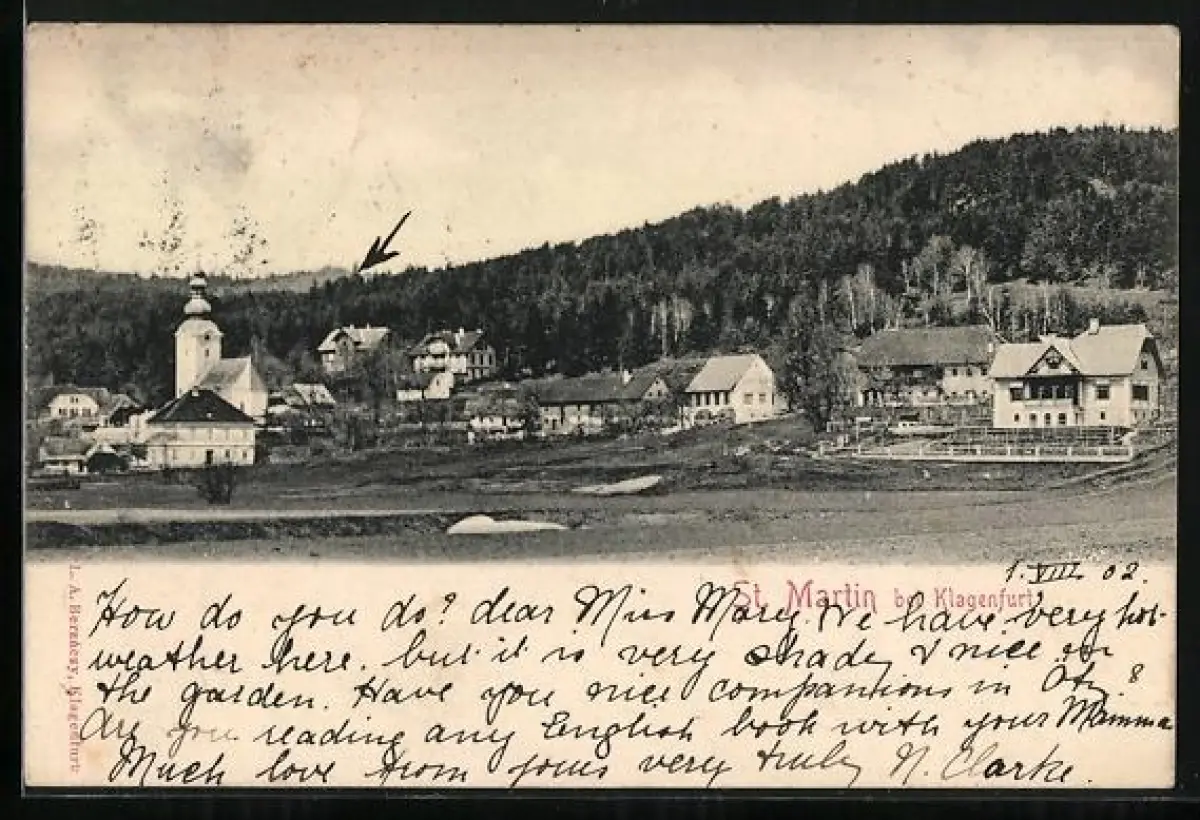 1. VIII 02.
St. Martin bei Klagenfurt
How do you do? dear Miss Mary. We have very hot
weather here. but it is very shady & nice in
the garden. Have you nice companions in Otz?
Are you reading any English book with your Mamma
Much love from yours very truly N. Clarke.
L. A. Bernhesy, Klagenfurt